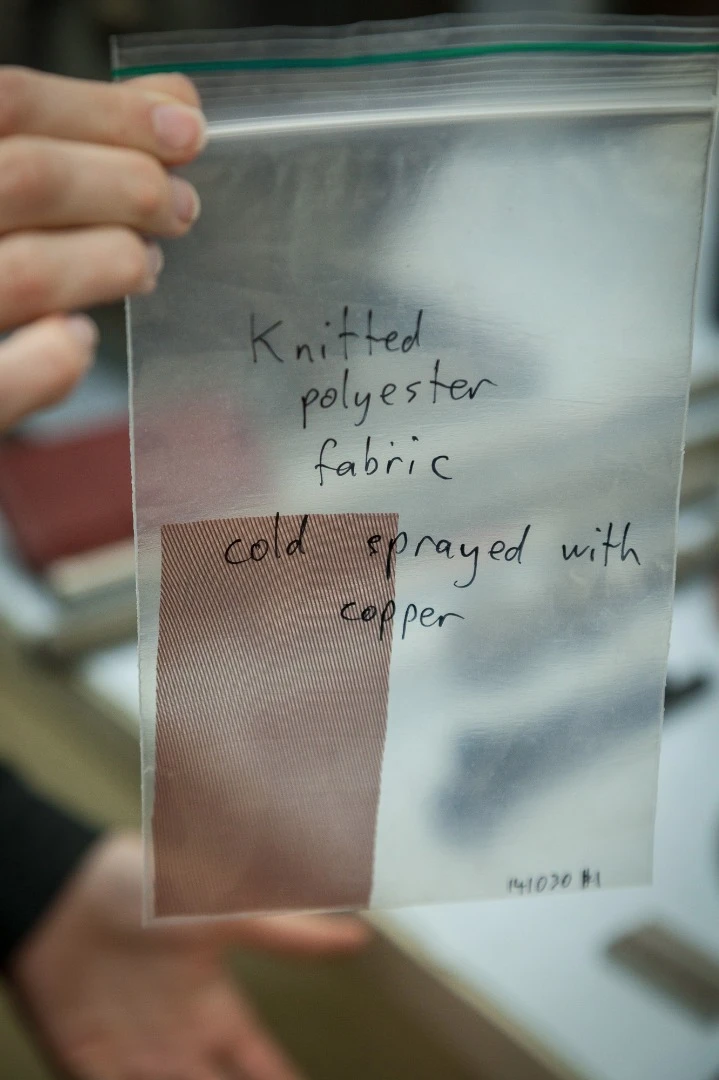 Knitted
polyester
fabric
cold sprayed with
copper
141030 #1